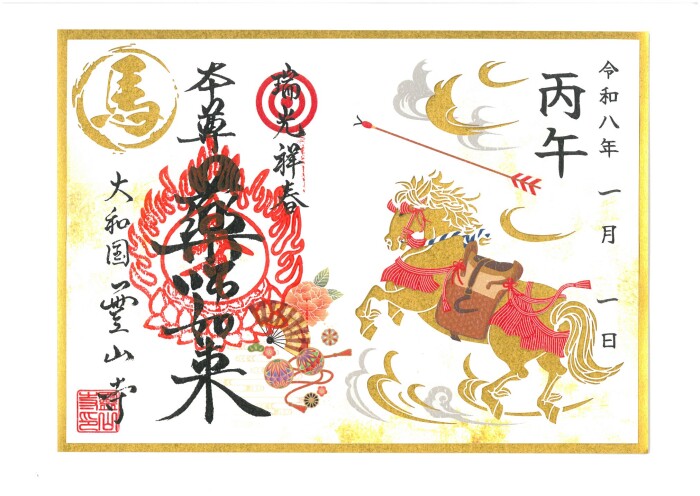 令和八年 一月 一日
丙午
瑞光祥春
本尊
薬師如来
馬
大和国 霊山寺